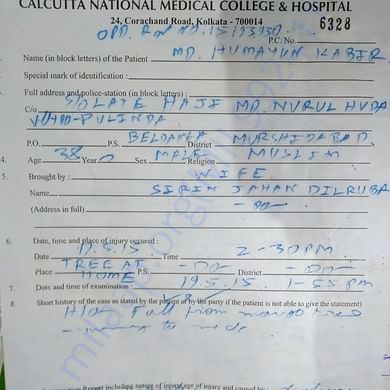 CALCUTTA NATIONAL MEDICAL COLLEGE & HOSPITAL
24, Corachand Road, Kolkata - 700014
6328
OPD. RN NO. 15193730
P.C. No.
Name (in block letters) of the Patient MD. HUMAYUN KABIR
Special mark of identification :
3. Full address and police-station (in block letters) :
C/o S/O LATE HAJI MD. NURUL HUDA
VILL+PO-PULINDA
P.O. P.S. BELDANGA District MURSHIDABAD
4. Age 38 Years Sex MALE Religion MUSLIM
5. Brought by : WIFE
Name SIRIN JAHAN DILRUBA
(Address in full) - DO -
6. Date, time and place of injury occured :
Date 17.5.15 Time 2-30 PM
Place TREE AT HOME P.S. -DO- District -DO-
7. Date and time of examination : 19.5.15 1-55 PM
8. Short history of the case as stated by the party if the patient is not able to give the statement)
H/O Fall from mango tree
milaap.org